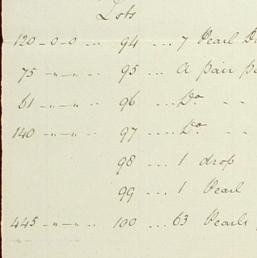 Lots
120 - 0 - 0 .. 94 ... 7 Pearl
75 - " - " .. 95 ... A pair
61 - " - " .. 96 ... Do - -
140 - " - " .. 97 .... Do - -
98 ... 1 drop
99 ... 1 Pearl
445 - " - " .. 100 ... 63 Pearls